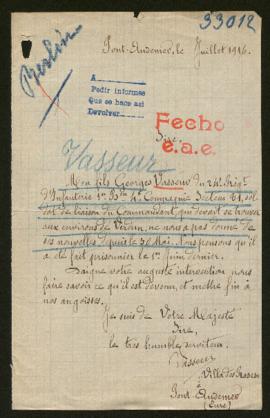 33012
Pont-Audemer, le Juillet 1916.
Berlin
A
Pedir informes
Que se hace así
Devolver
Fecho
e.a.e.
Sire,
Vasseur
Mon fils Georges Vasseur du 24e Rég.t
d'Infanterie 1er Bon 4e Compagnie Secteur 61, sol-
dat de liaison du Commandant, qui devait se trouver
aux environs de Verdun, ne nous a pas donné de
ses nouvelles depuis le 30 Mai. Nous pensons qu'il
a été fait prisonnier le 1er Juin dernier.
Daigne votre auguste intercession nous
faire savoir ce qu'il est devenu, et mettre fin à
nos angoisses.
Je suis de Votre Majesté
Sire,
le très humble serviteur.
Vasseur
Pont-Audemer
(Eure)